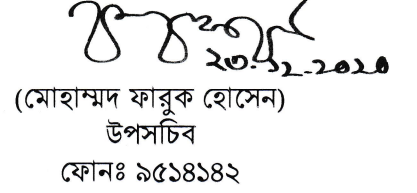 ২৩.১২.২০২০
(মোহাম্মদ ফারুক হোসেন)
উপসচিব
ফোনঃ ৯৫১৪১৪২